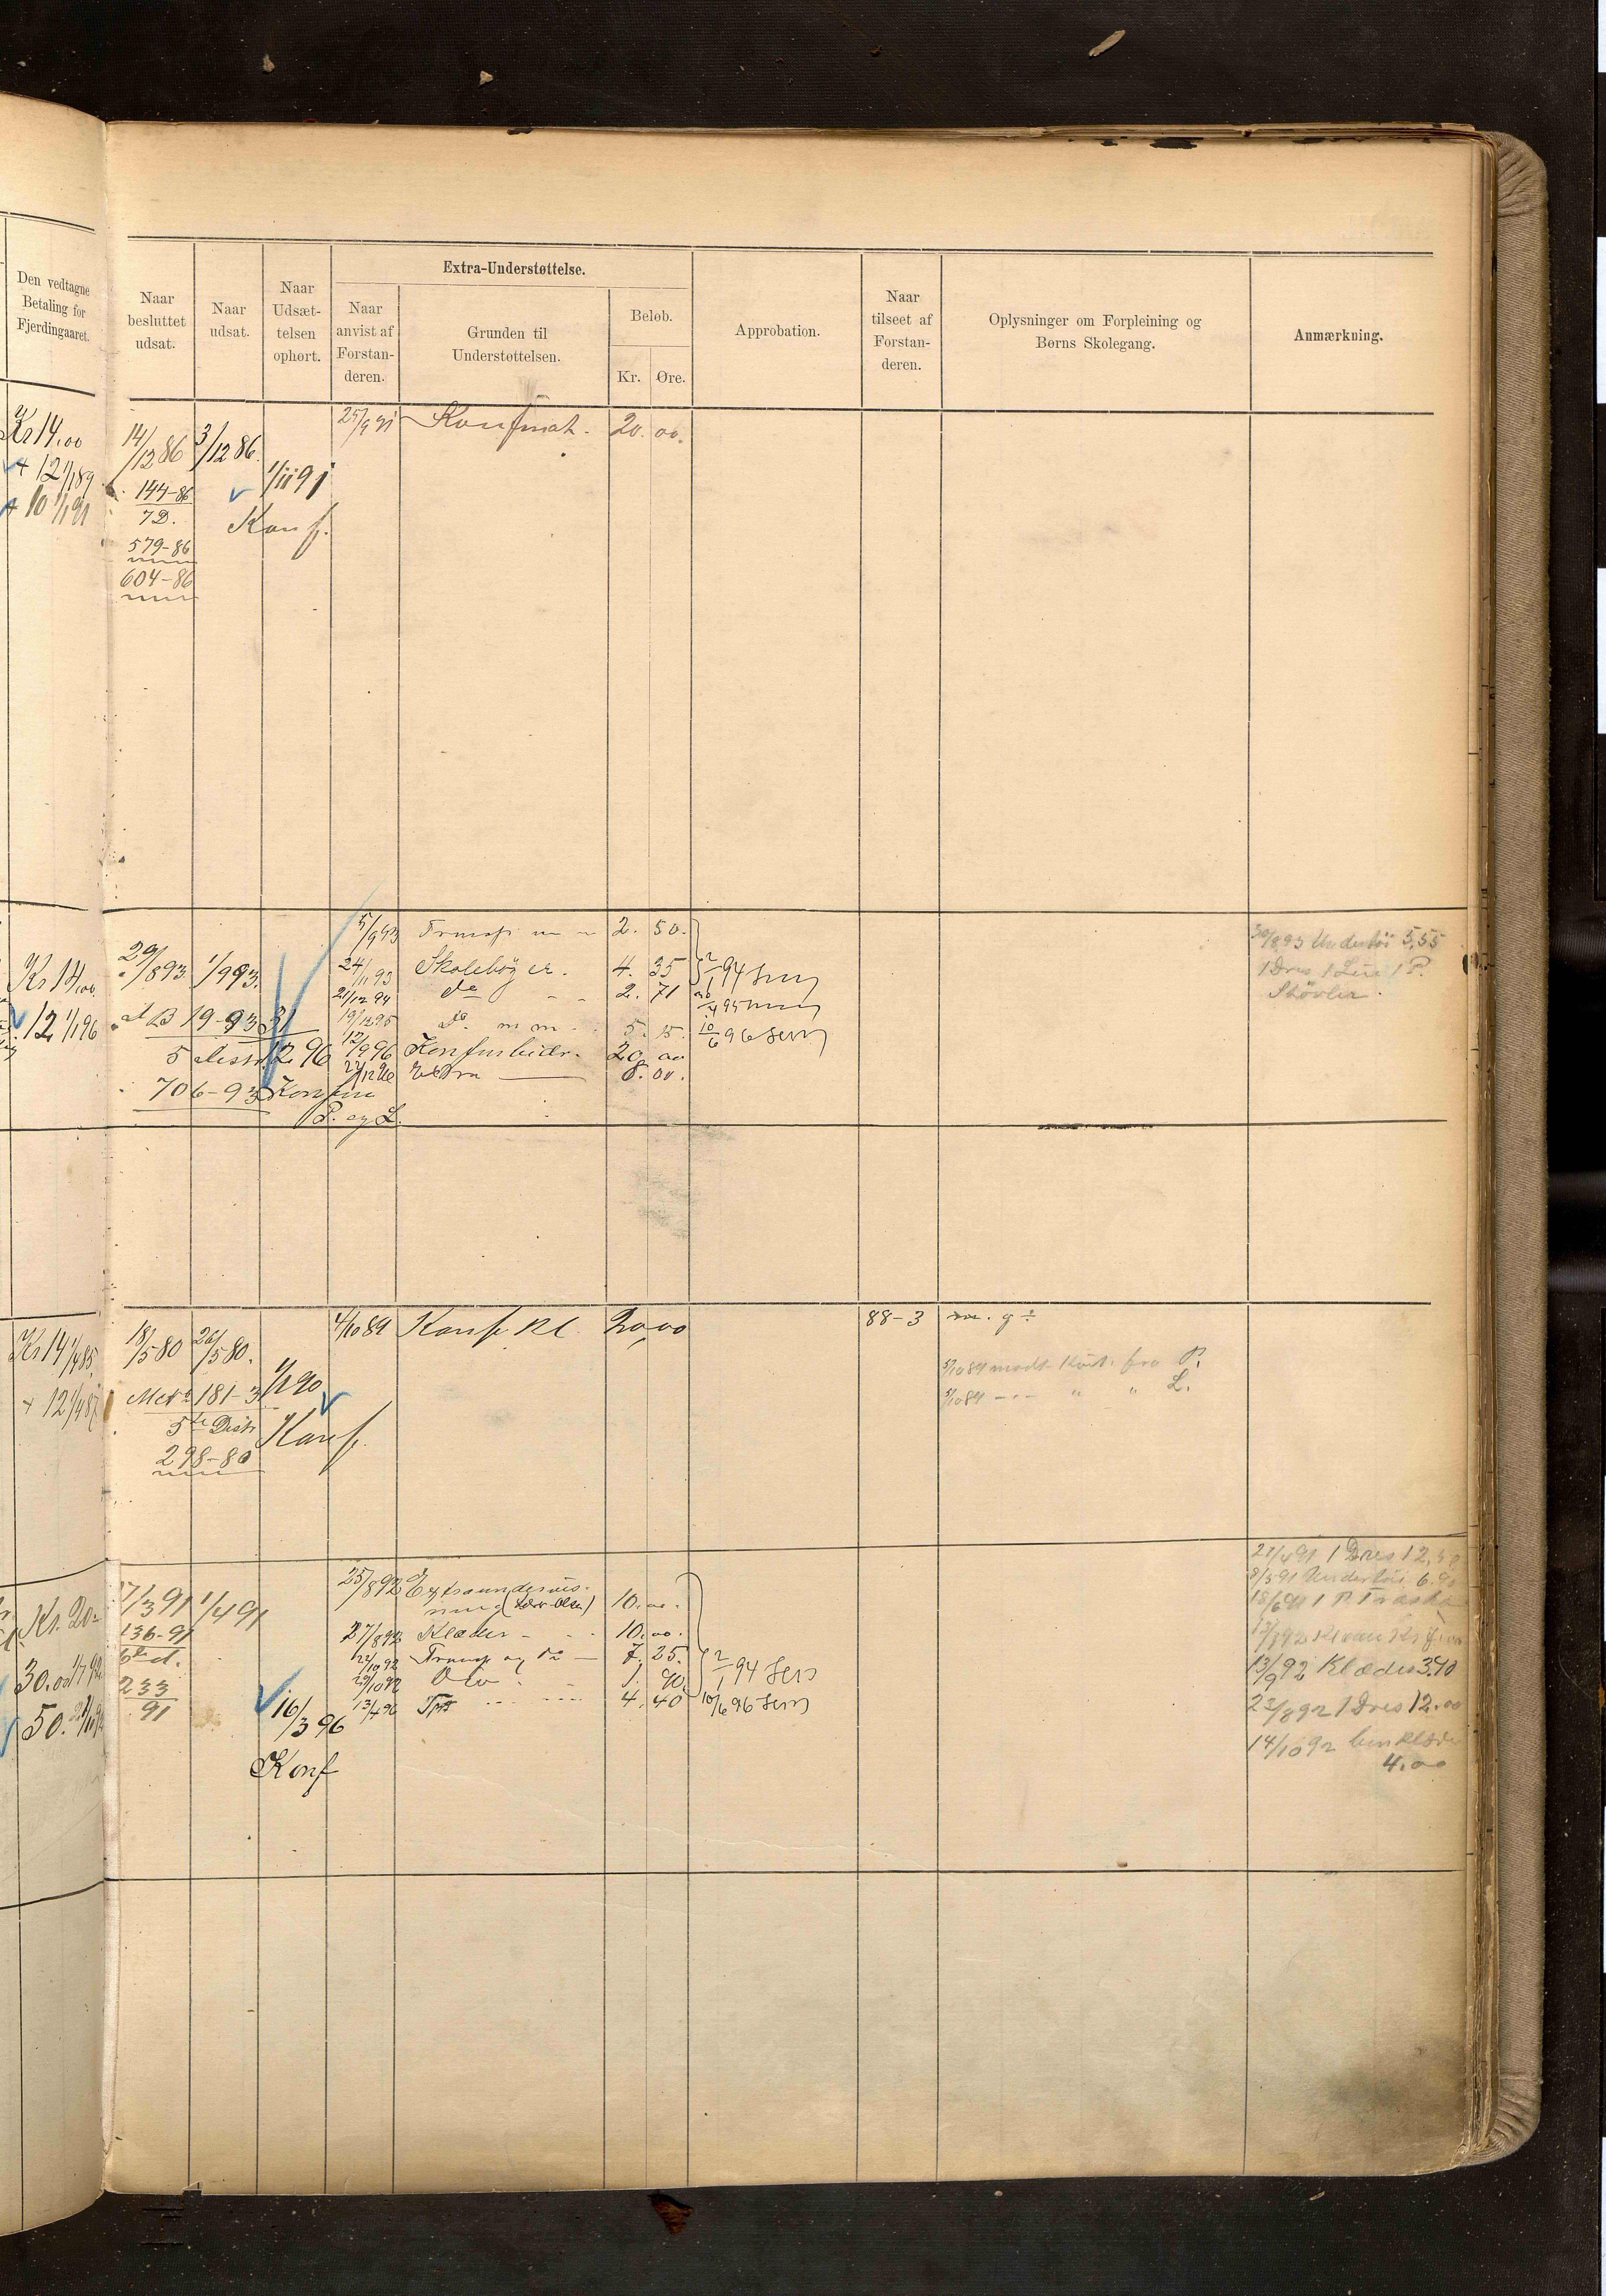 Den vedtagne
Betaling for
Fjerdingaaret.
Naar
besluttet
udsat.
Naar
udsat.
Naar
Udsæt-
telsen
ophørt.
Extra-Understøttelse.
Naar
anvist af
Forstan-
deren.
Grunden til
Understøttelsen.
Beløb.
Kr.
Øre.
Approbation.
Naar
tilseet af
Forstan-
deren.
Oplysninger om Forpleining og
Børns Skolegang.
Anmærkning.
Kr 14.00
+ 12 1/1 89
+ 10 1/1 91
14/12 86
3/12 86.
1/11 91
144-86
7D.
Konf.
579-86
604-86
25/9 91
20.00.
Kr 14.00
12 1/1 96
29/8 93
1/9 93.
B 19-93
31
5
12 96
706-93
P. og L.
5/9 93
2. 50.
24/11 93 Skolebøger. 4. 35
21/12 94 do 2. 71
19/12 95 Do. 5. 15.
12/9 96 20. 00
8. 00.
2/1 94
10/6 96
30/8 93 Undertøi 5,55
1 Dres 1 P.
Støvler.
Kr 14 1/4 85.
+ 12 1/4 87
18/5 80
26/5 80.
1/1 90
181-3
5te Distr
298-80
Konf.
4/10 89 Konf. Kl. 20,00
88-3
m. g ÷
5/10 89 modt Kvit. fra P.
5/10 89 - " - " " L.
Kr. 20-
30.00 1/7 92
50.
17/3 91
1/4 91
136-91
6te d.
233
91
16/3 96
Konf
25/8 92 Extraundervis-
ning 10. 00.
27/8 92 Klæder - 10. 00.
22/10 92 Transp og do - 7. 25.
29/10 92 1. 90.
13/4 96 4. 40
2/1 94
10/6 96
27/4 91 1 Dres 12,
8/5 91 Undertøi 6.90
18/6 91 1 P. Træsko
13/9 92 Klæder 3.90
23/8 92 1 Dres 12.00
14/10 92
4.00